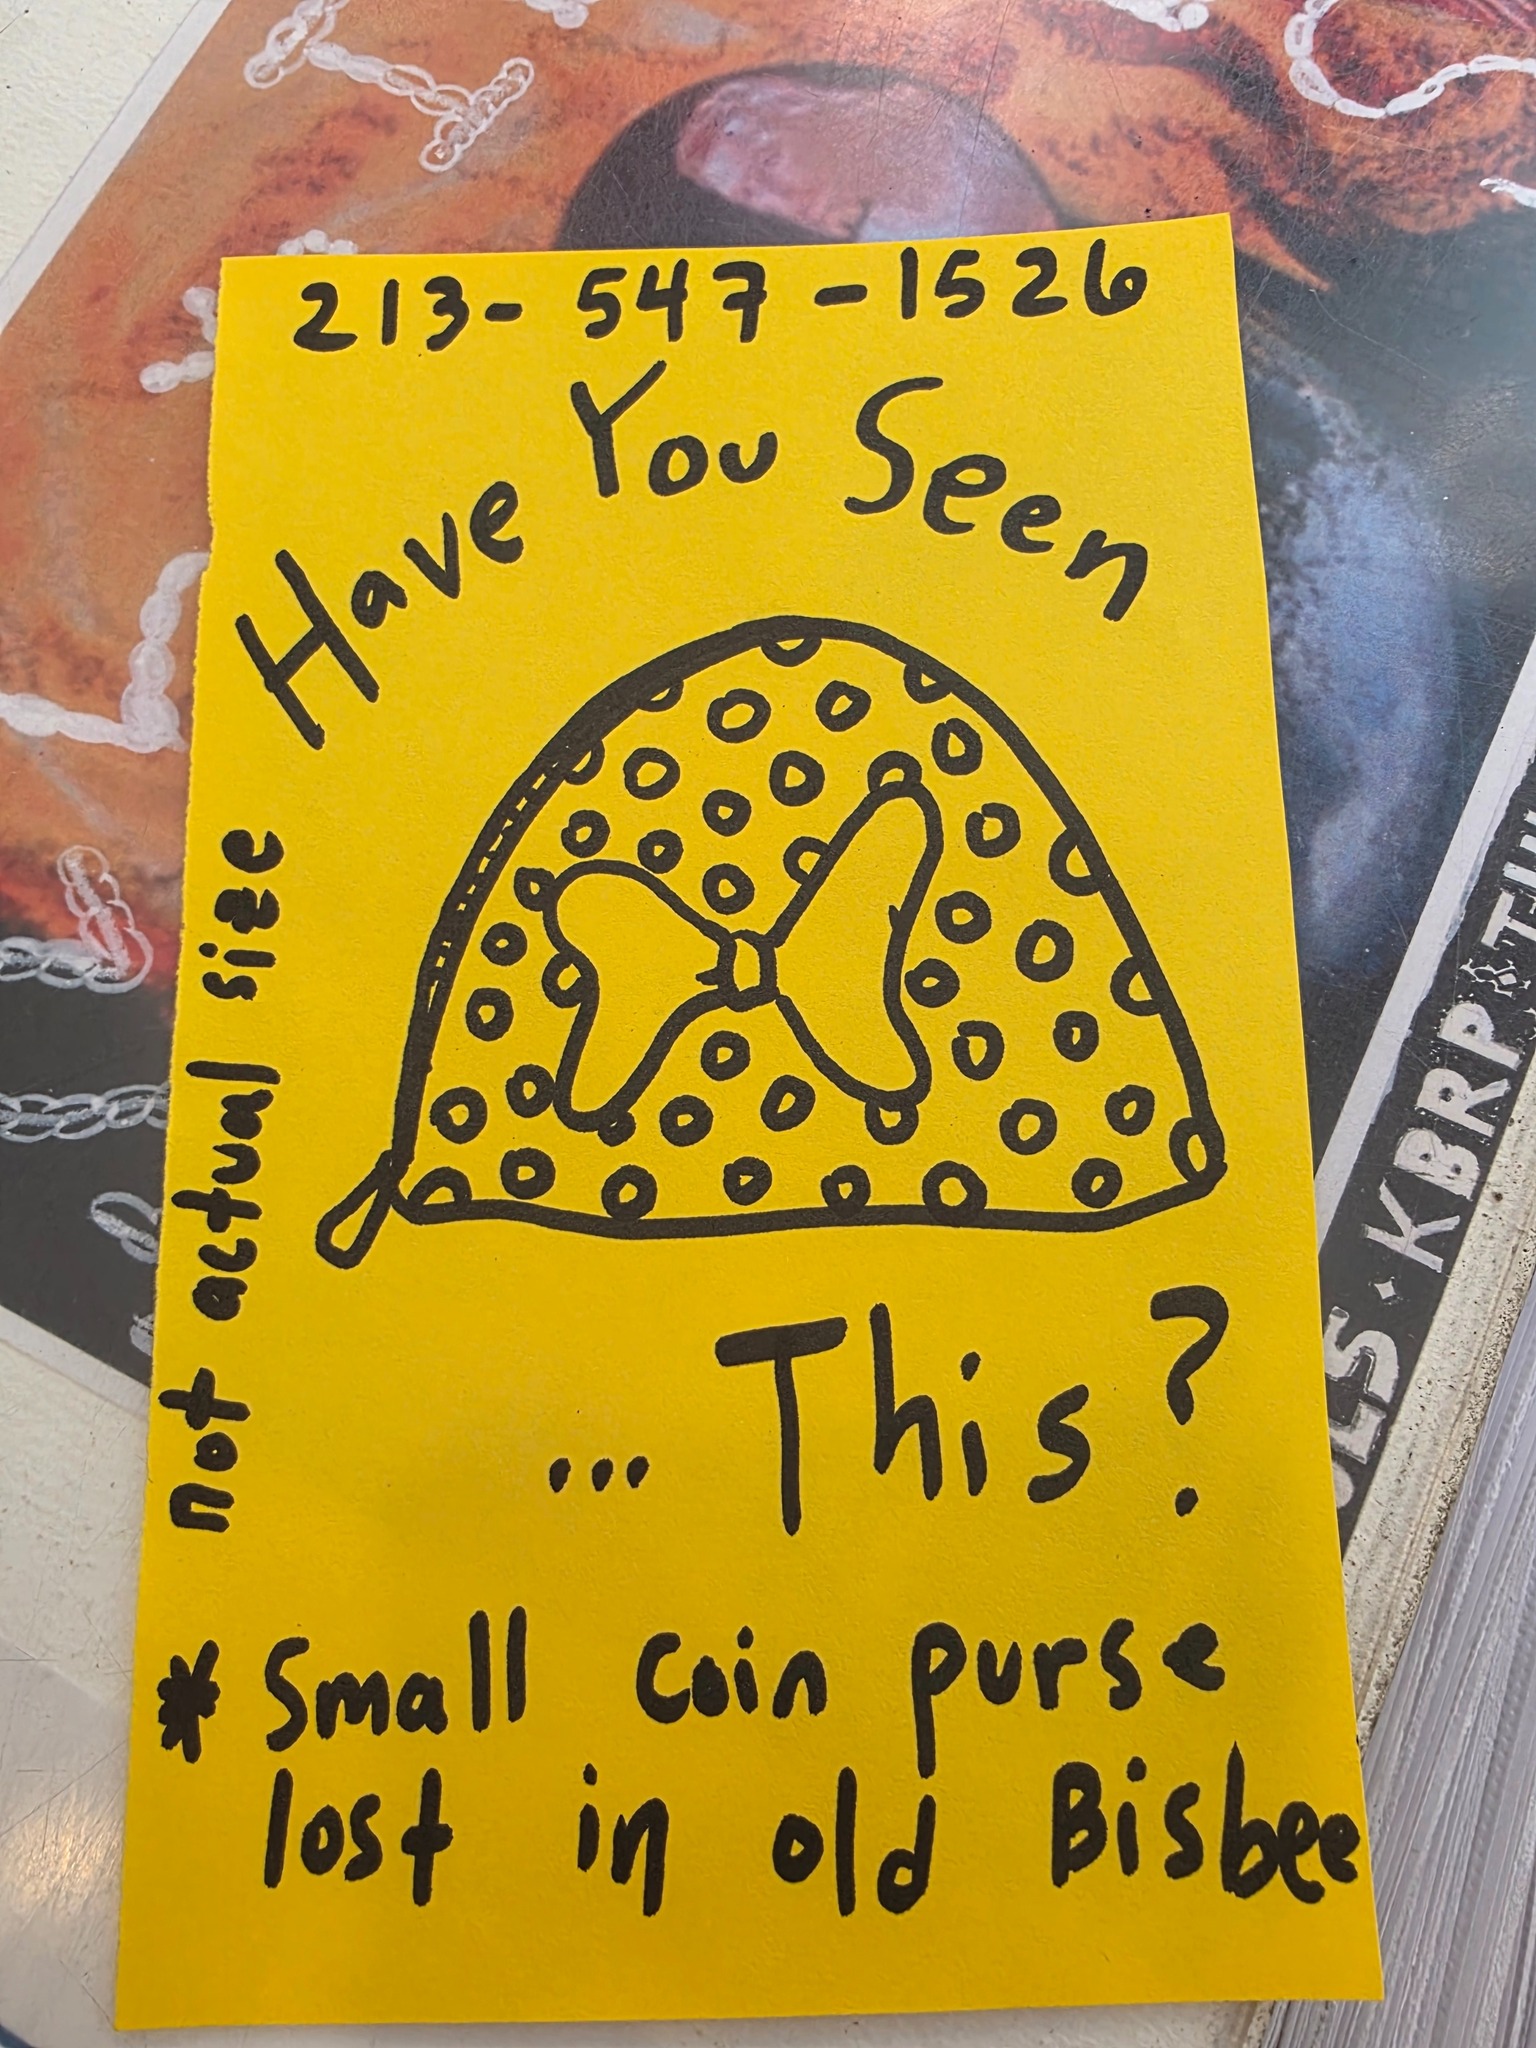 213-547-1526
Have You Seen
not actual size
... This?
* Small coin purse
lost in old Bisbee
KBRP